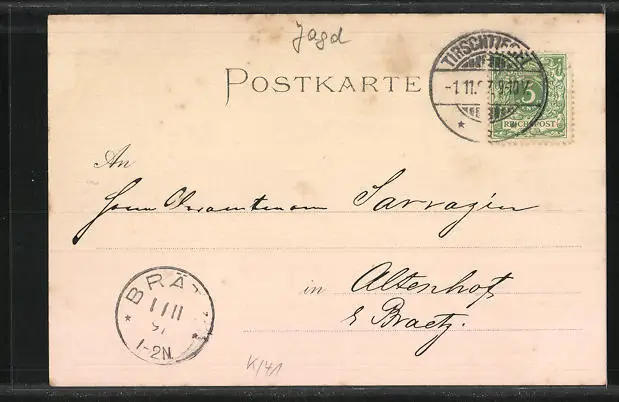 Jagd
POSTKARTE
TIRSCHTIEGEL
-1.11.97. 9-10V.
5
REICHSPOST
An
Herrn Oberamtmann Sarrazin
in Altenhof
b Braetz.
BRÄTZ
1 11
97
1-2N.
K/41